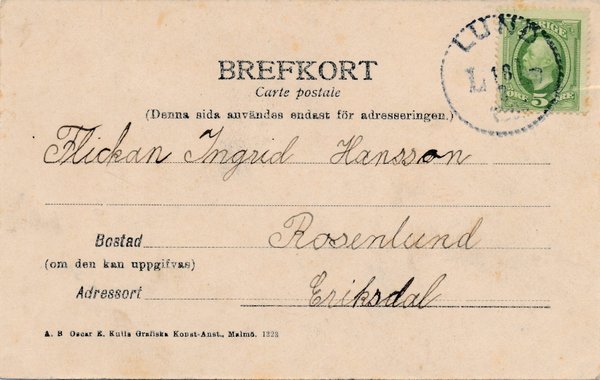 LUND
SVERIGE
L 18
5
BREFKORT
Carte postale
(Denna sida användes endast för adresseringen.)
Flickan Ingrid Hansson
Bostad Rosenlund
(om den kan uppgifvas)
Adressort Eriksdal
A. B. Oscar E. Kulls Grafiska Konst-Anst., Malmö. 1323